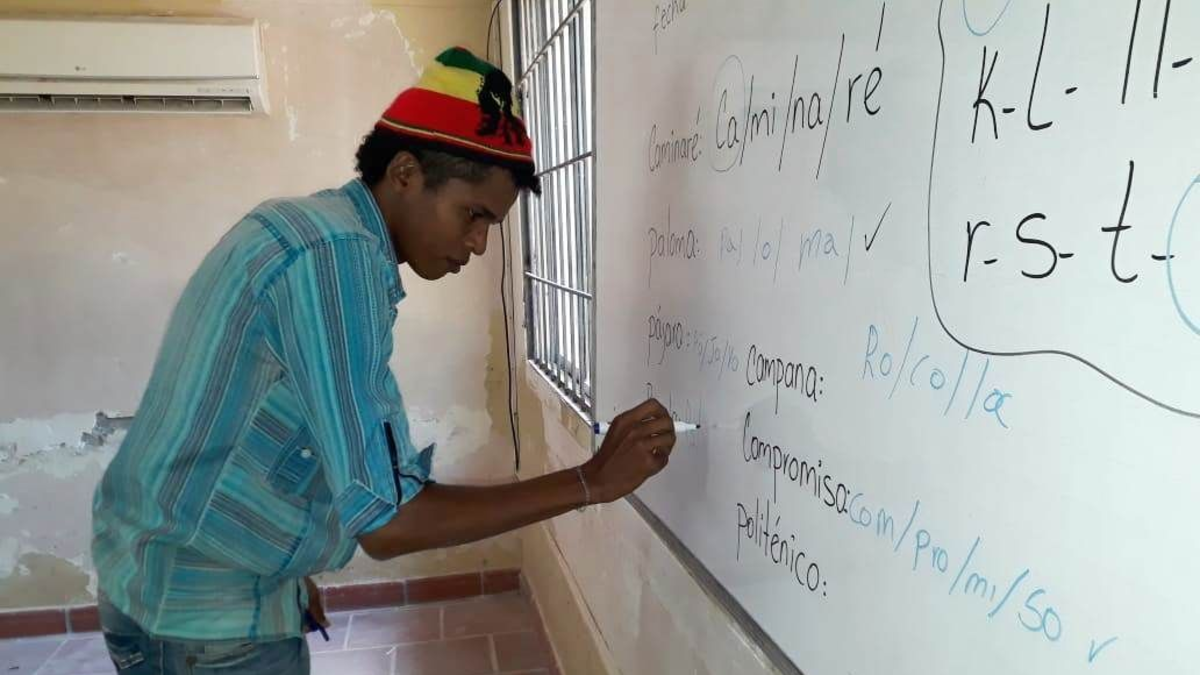 LG
fecha
Caminaré: Ca/mi/na/ré
k-l-ll-
paloma: Pa/lo/ma/ ✓
r-s-t-
pájaro: Pa/Ja/ro
campana: Ro/co/la
Compromisa: com/pro/mi/so ✓
politénico: